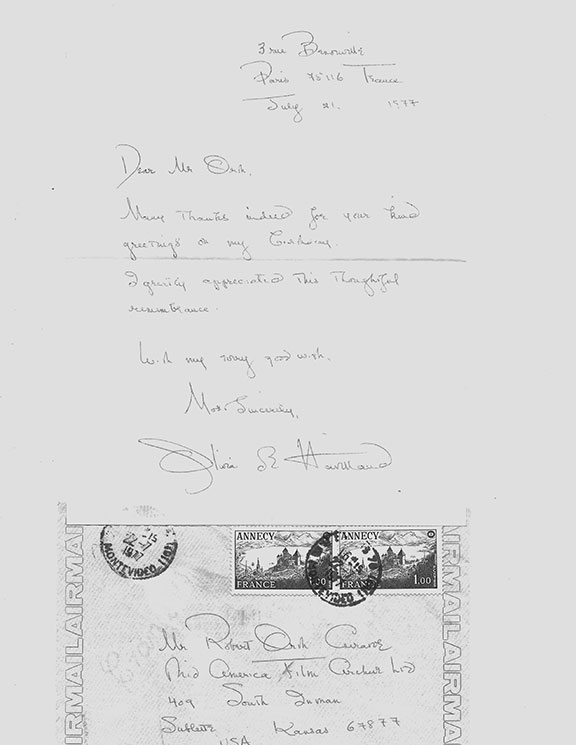 3 rue Benouville
Paris 75116 France
July 21. 1977
Dear Mr Orth,
Many thanks indeed for your kind
greetings on my birthday.
I greatly appreciated this thoughtful
remembrance.
With my very good wish.
Most Sincerely,
Olivia de Havilland
-15
22-7
1977
MONTEVIDEO (16)
ANNECY
FRANCE 1.00
ANNECY
1.00
AIRMAIL AIRMAIL
AIRMAIL AIRMAIL
Mr Robert Orth
Mid America Film Archive Ltd
409 South Inman
Sublette Kansas 67877
USA